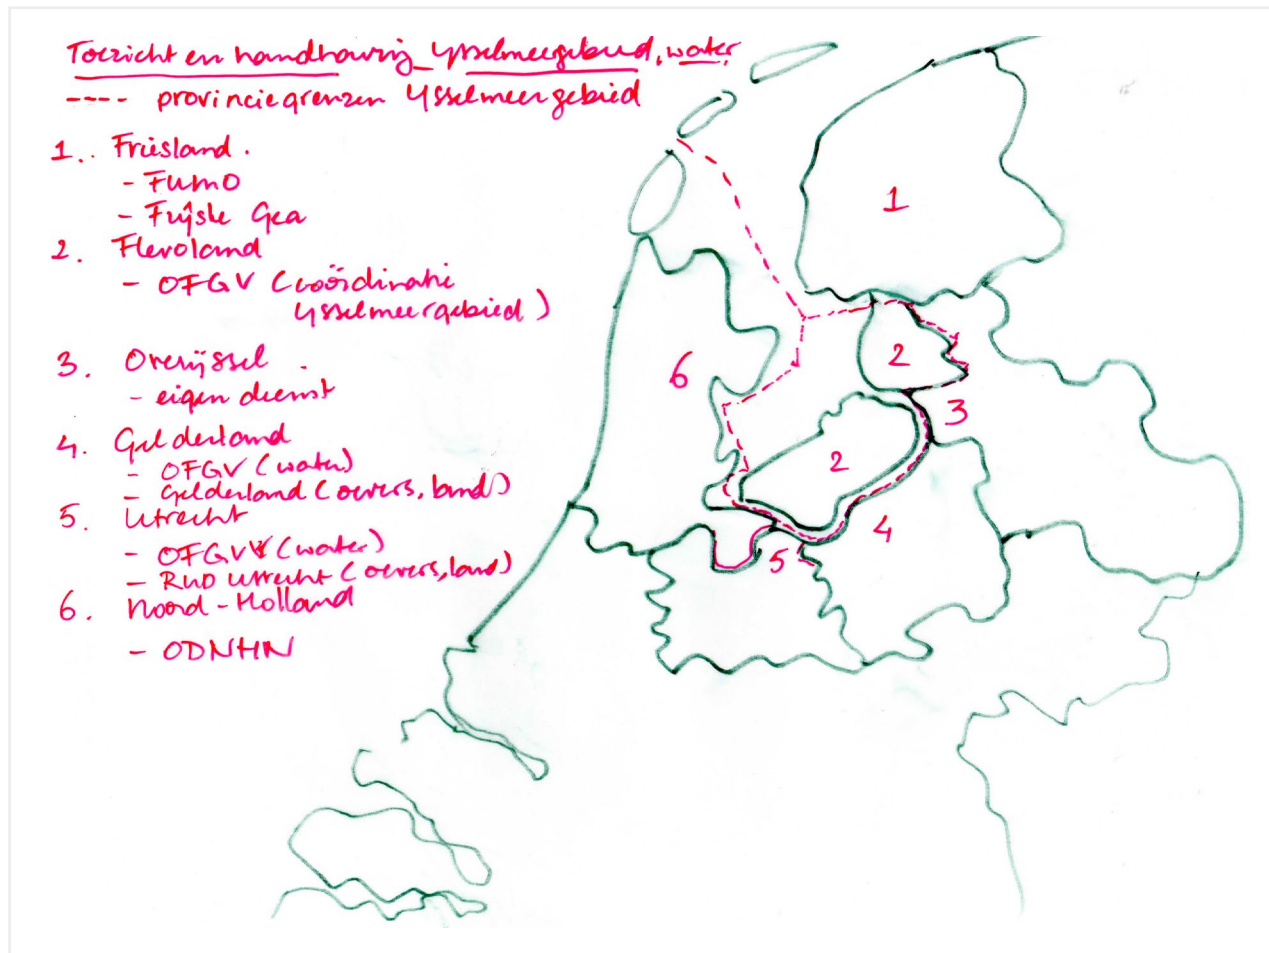 Toezicht en handhaving_IJsselmeergebied, water
---- provinciegrenzen IJsselmeergebied
1. Friesland.
- FUMO
- Fryske Gea
2. Flevoland
- OFGV (coördinatie
IJsselmeergebied)
3. Overijssel
- eigen dienst
4. Gelderland
- OFGV (water)
- Gelderland (oevers, land)
5. Utrecht
- OFGV (water)
- RUD Utrecht (oevers, land)
6. Noord-Holland
- ODNHN
1
2
6
3
2
4
5